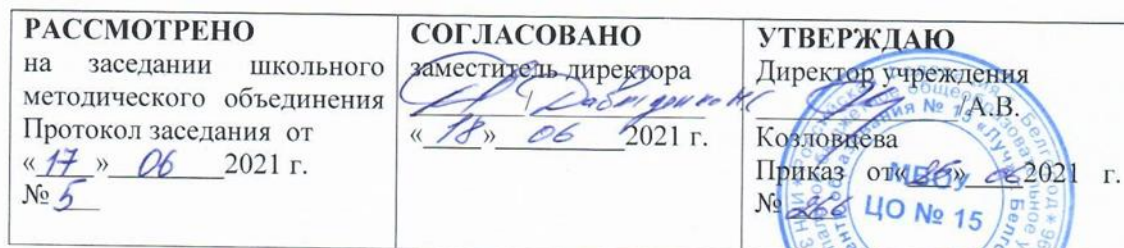 РАССМОТРЕНО
на заседании школьного
методического объединения
Протокол заседания от
«17» 06 2021 г.
№ 5
СОГЛАСОВАНО
заместитель директора
/
«18» 06 2021 г.
УТВЕРЖДАЮ
Директор учреждения
/А.В.
Козловцева
Приказ от« » 2021 г.
№ 266
МБОУ
ЦО № 15